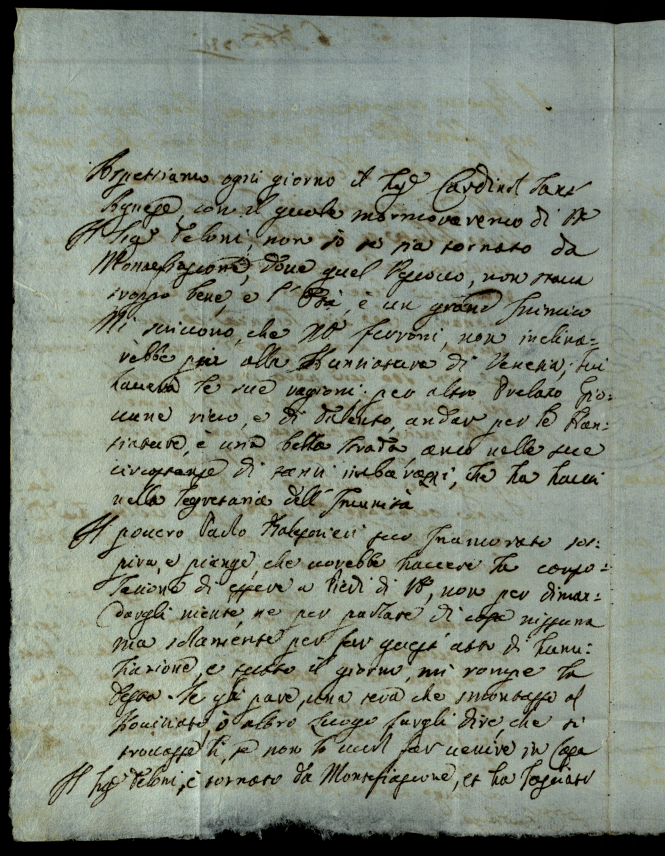 Aspettiamo ogni giorno il Sig.r Cardinal Sant
Agnese, con il quale mormoraremo di
Il Sig.r Peloni, non so se sia tornato da
Montefiascone, dove quel Vescovo, non stava
troppo bene, e l' è un grand' Inimico
Mi scrivono, che M.r non inclina-
rebbe più alla Nunziatura di Venezia,
haverà le sue ragioni per altro Prelato Gio-
vane ricco, e di talento, andar per le Nun-
ziature, è una bella strada, anco nelle sue
circostanze di tanti imbarazzi, che ha havuti
nella Segretaria dell' Immunità
Il povero Paolo suo Inamorato sos-
pira, e piange, che vorebbe havere la conso-
lazione di essere a Piedi di non per diman-
dargli niente, ne per parlare di cosa nissuna
ma solamente per far quest' atto di humi-
liazione e tutto il giorno, mi rompe la
testa. Se gli pare, una sera che smontasse al
ò altro luogo fargli dire che si
trovasse lì, se non lo vuol far venire in Casa
Il Sig.r Peloni, è tornato da Montefiascone, et ha lasciato